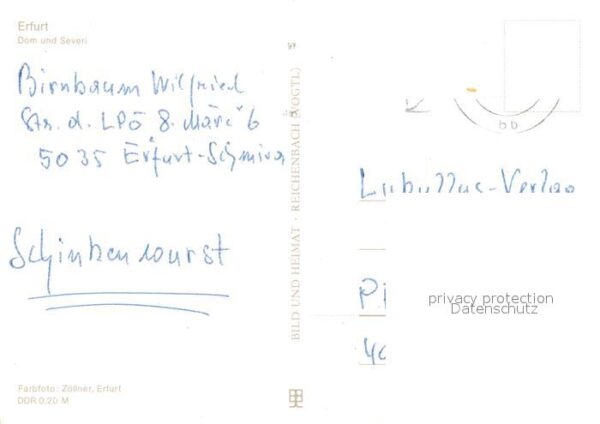 Erfurt
Dom und Severi
Birnbaum Wilfried
Str. d. LPG 8. März 6
5035 Erfurt-Schmira
Schinkenwurst
Farbfoto: Zöllner, Erfurt
DDR 0,20 M
BILD UND HEIMAT · REICHENBACH (VOGTL)
-Verlag
privacy protection
Datenschutz